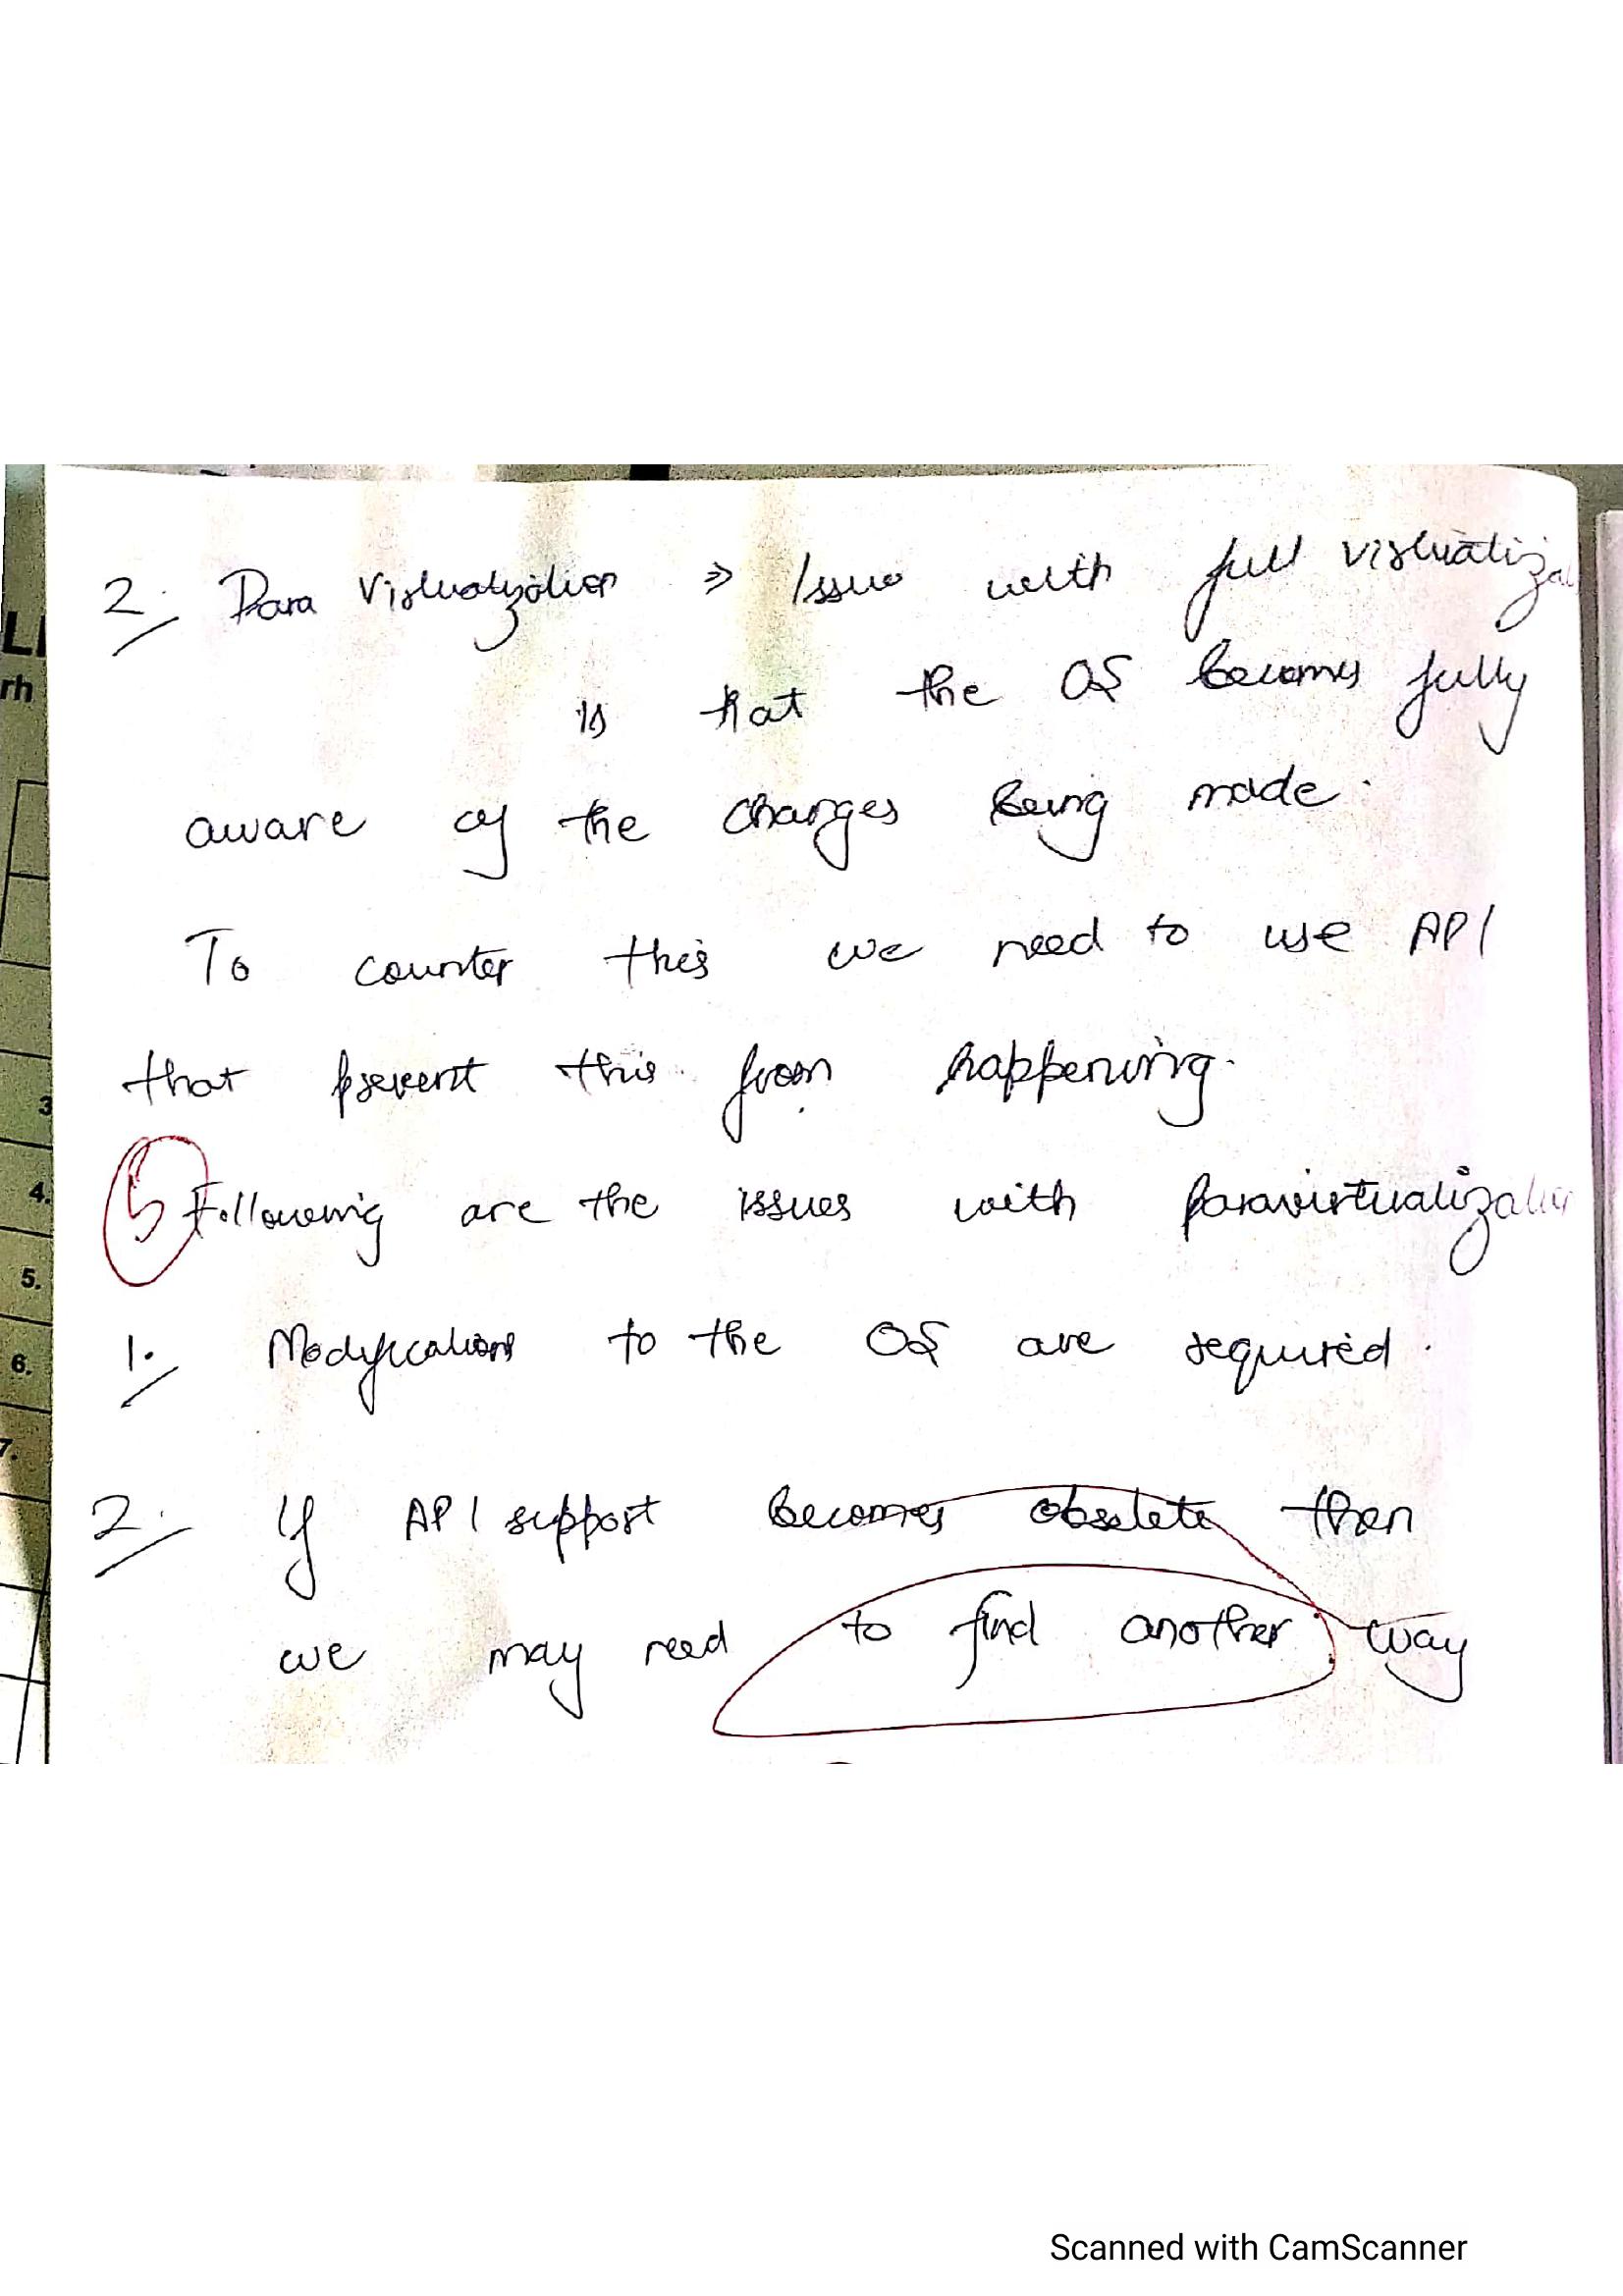 2. Para Virtualization ⇒ Issue with full virtualiza
is that the OS becomes fully
aware of the changes being made.
To counter this we need to use API
that prevent this from happening.
5
Following are the issues with paravirtualizatio
1. Modifications to the OS are required.
2. If API support becomes obselete then
we may need to find another way
LI
rh
3
4.
5.
6.
7.
Scanned with CamScanner